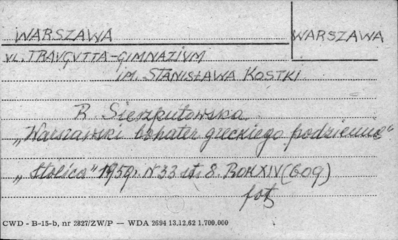 WARSZAWA WARSZAWA
UL. TRAUGUTTA-GIMNAZIUM
IM. STANISŁAWA KOSTKI
B. Sieszputowska
„Warszawski bohater greckiego podziemia"
„Stolica" 1959r. N 33 st. 8. ROK XIV (609)
fot
CWD - B-15-b, nr 2827/ZW/P — WDA 2694 13.12.62 1.700.000